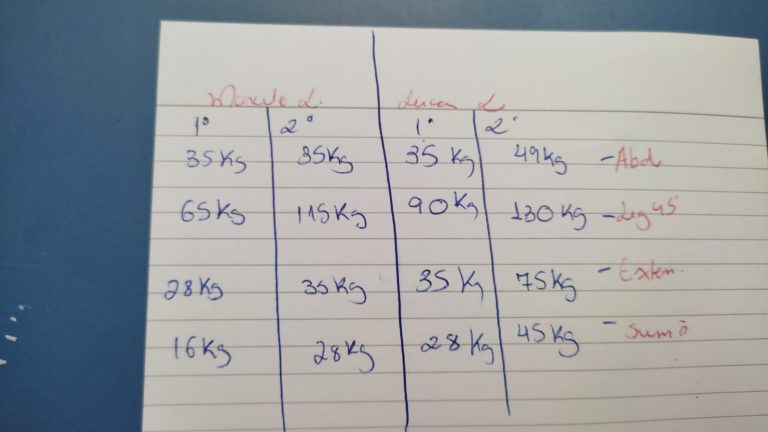 Marcelo L. Lucas L
1° 2° 1° 2°
35Kg 35Kg 35Kg 49Kg - Abd
65Kg 115Kg 90Kg 130Kg - Leg 45
28Kg 35Kg 35Kg 75Kg - Exten.
16Kg 28Kg 28Kg 45Kg - Sumô